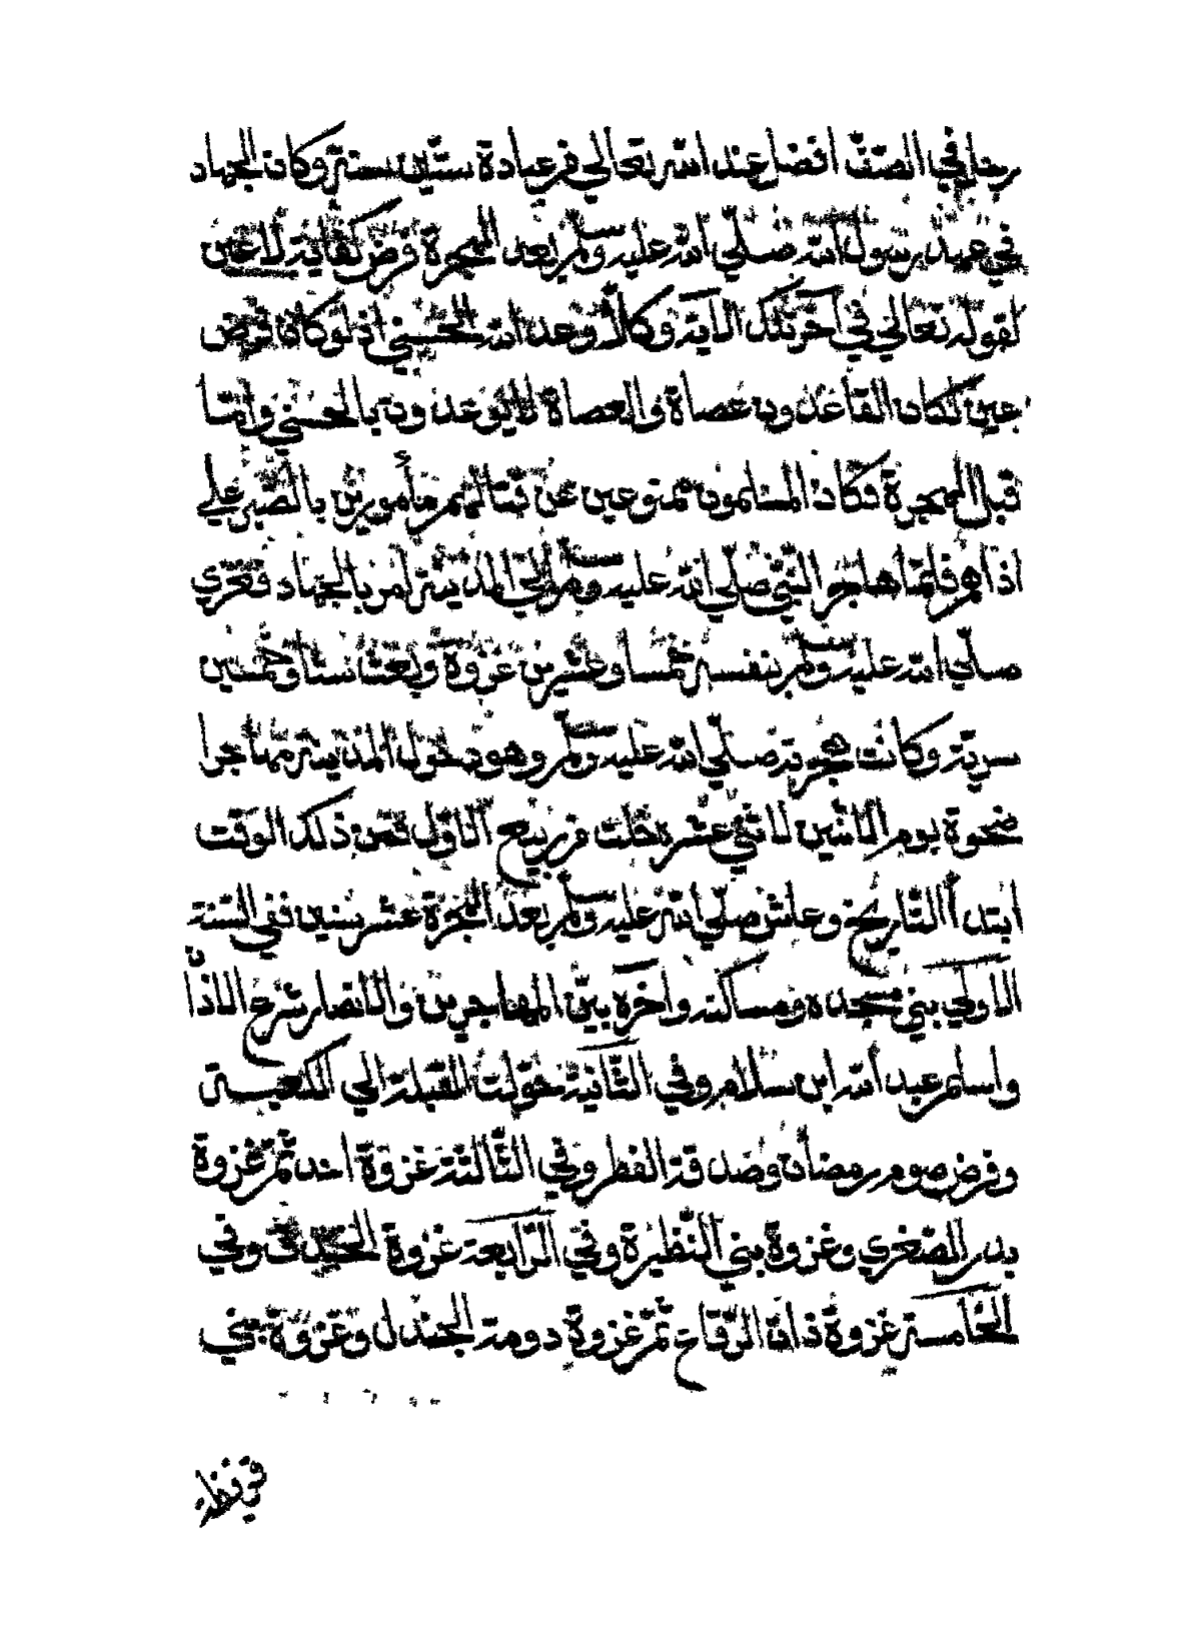 رجل في الصّفّ افضل عند الله تعالي من عبادة ستّين سنة وكان الجهاد
في عهد رسول الله صلّي الله عليه وسلّم بعد الهجرة فرض كفاية لا عين
لقوله تعالي في آخر تلك الآية وكلّا وعد الله الحسني اذ لو كان فرض
عين لكان القاعدون عصاة والعصاة لا يوعدون بالحسني وامّا
قبل الهجرة فكان المسلمون ممنوعين عن قتالهم مأمورين بالصّبر علي
اذاهم فلمّا هاجر النّبيّ صلّي الله عليه وسلّم الي المدينة امر بالجهاد فغزي
صلّي الله عليه وسلّم بنفسه خمسا وعشرين غزوة وبعث ستّا وخمسين
سريّة وكانت هجرته صلّي الله عليه وسلّم وهو دخول المدينة مهاجرا
ضحوة يوم الاثنين لاثني عشرة خلت من ربيع الاوّل فمن ذلك الوقت
ابتدأ التّاريخ وعاش صلّي الله عليه وسلّم بعد الهجرة عشر سنين ففي السّنة
الاولي بني مسجده ومساكنه وآخره بين المهاجرين والانصار شرع الاذا
واسلم عبد الله ابن سلام وفي الثّانية حوّلت القبلة الي الكعبة
وفرض صوم رمضان وصدقة الفطر وفي الثّالثة غزوة احد ثمّ غزوة
بدر الصّغري وغزوة بني النّظيرة وفي الرّابعة غزوة الخندق وفي
الخامسة غزوة ذات الرّقاع ثمّ غزوة دومة الجندل وغزوة بني
قريظة